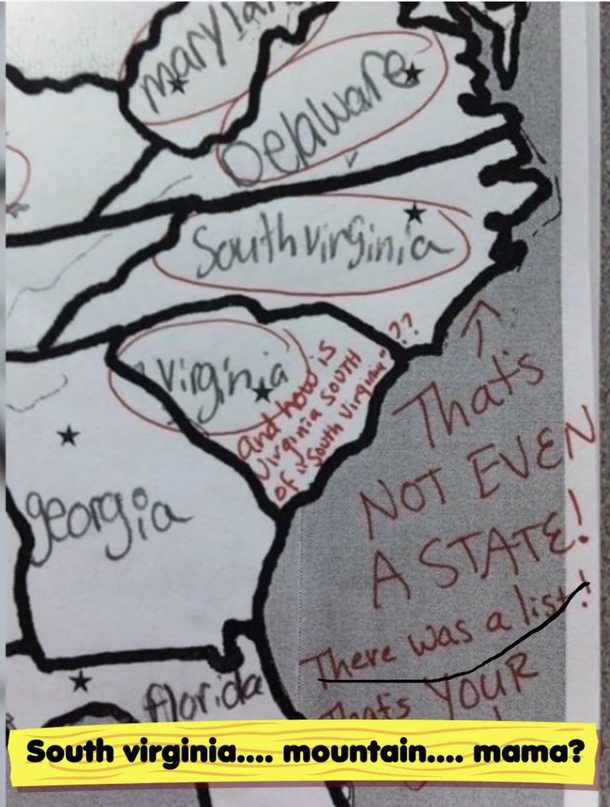 maryland
Delaware
South virginia
virginia
and how is
Virginia SOUTH
of "South Virginia"??
That's
NOT EVEN
A STATE!
There was a list!
That's YOUR
georgia
florida
South virginia.... mountain.... mama?